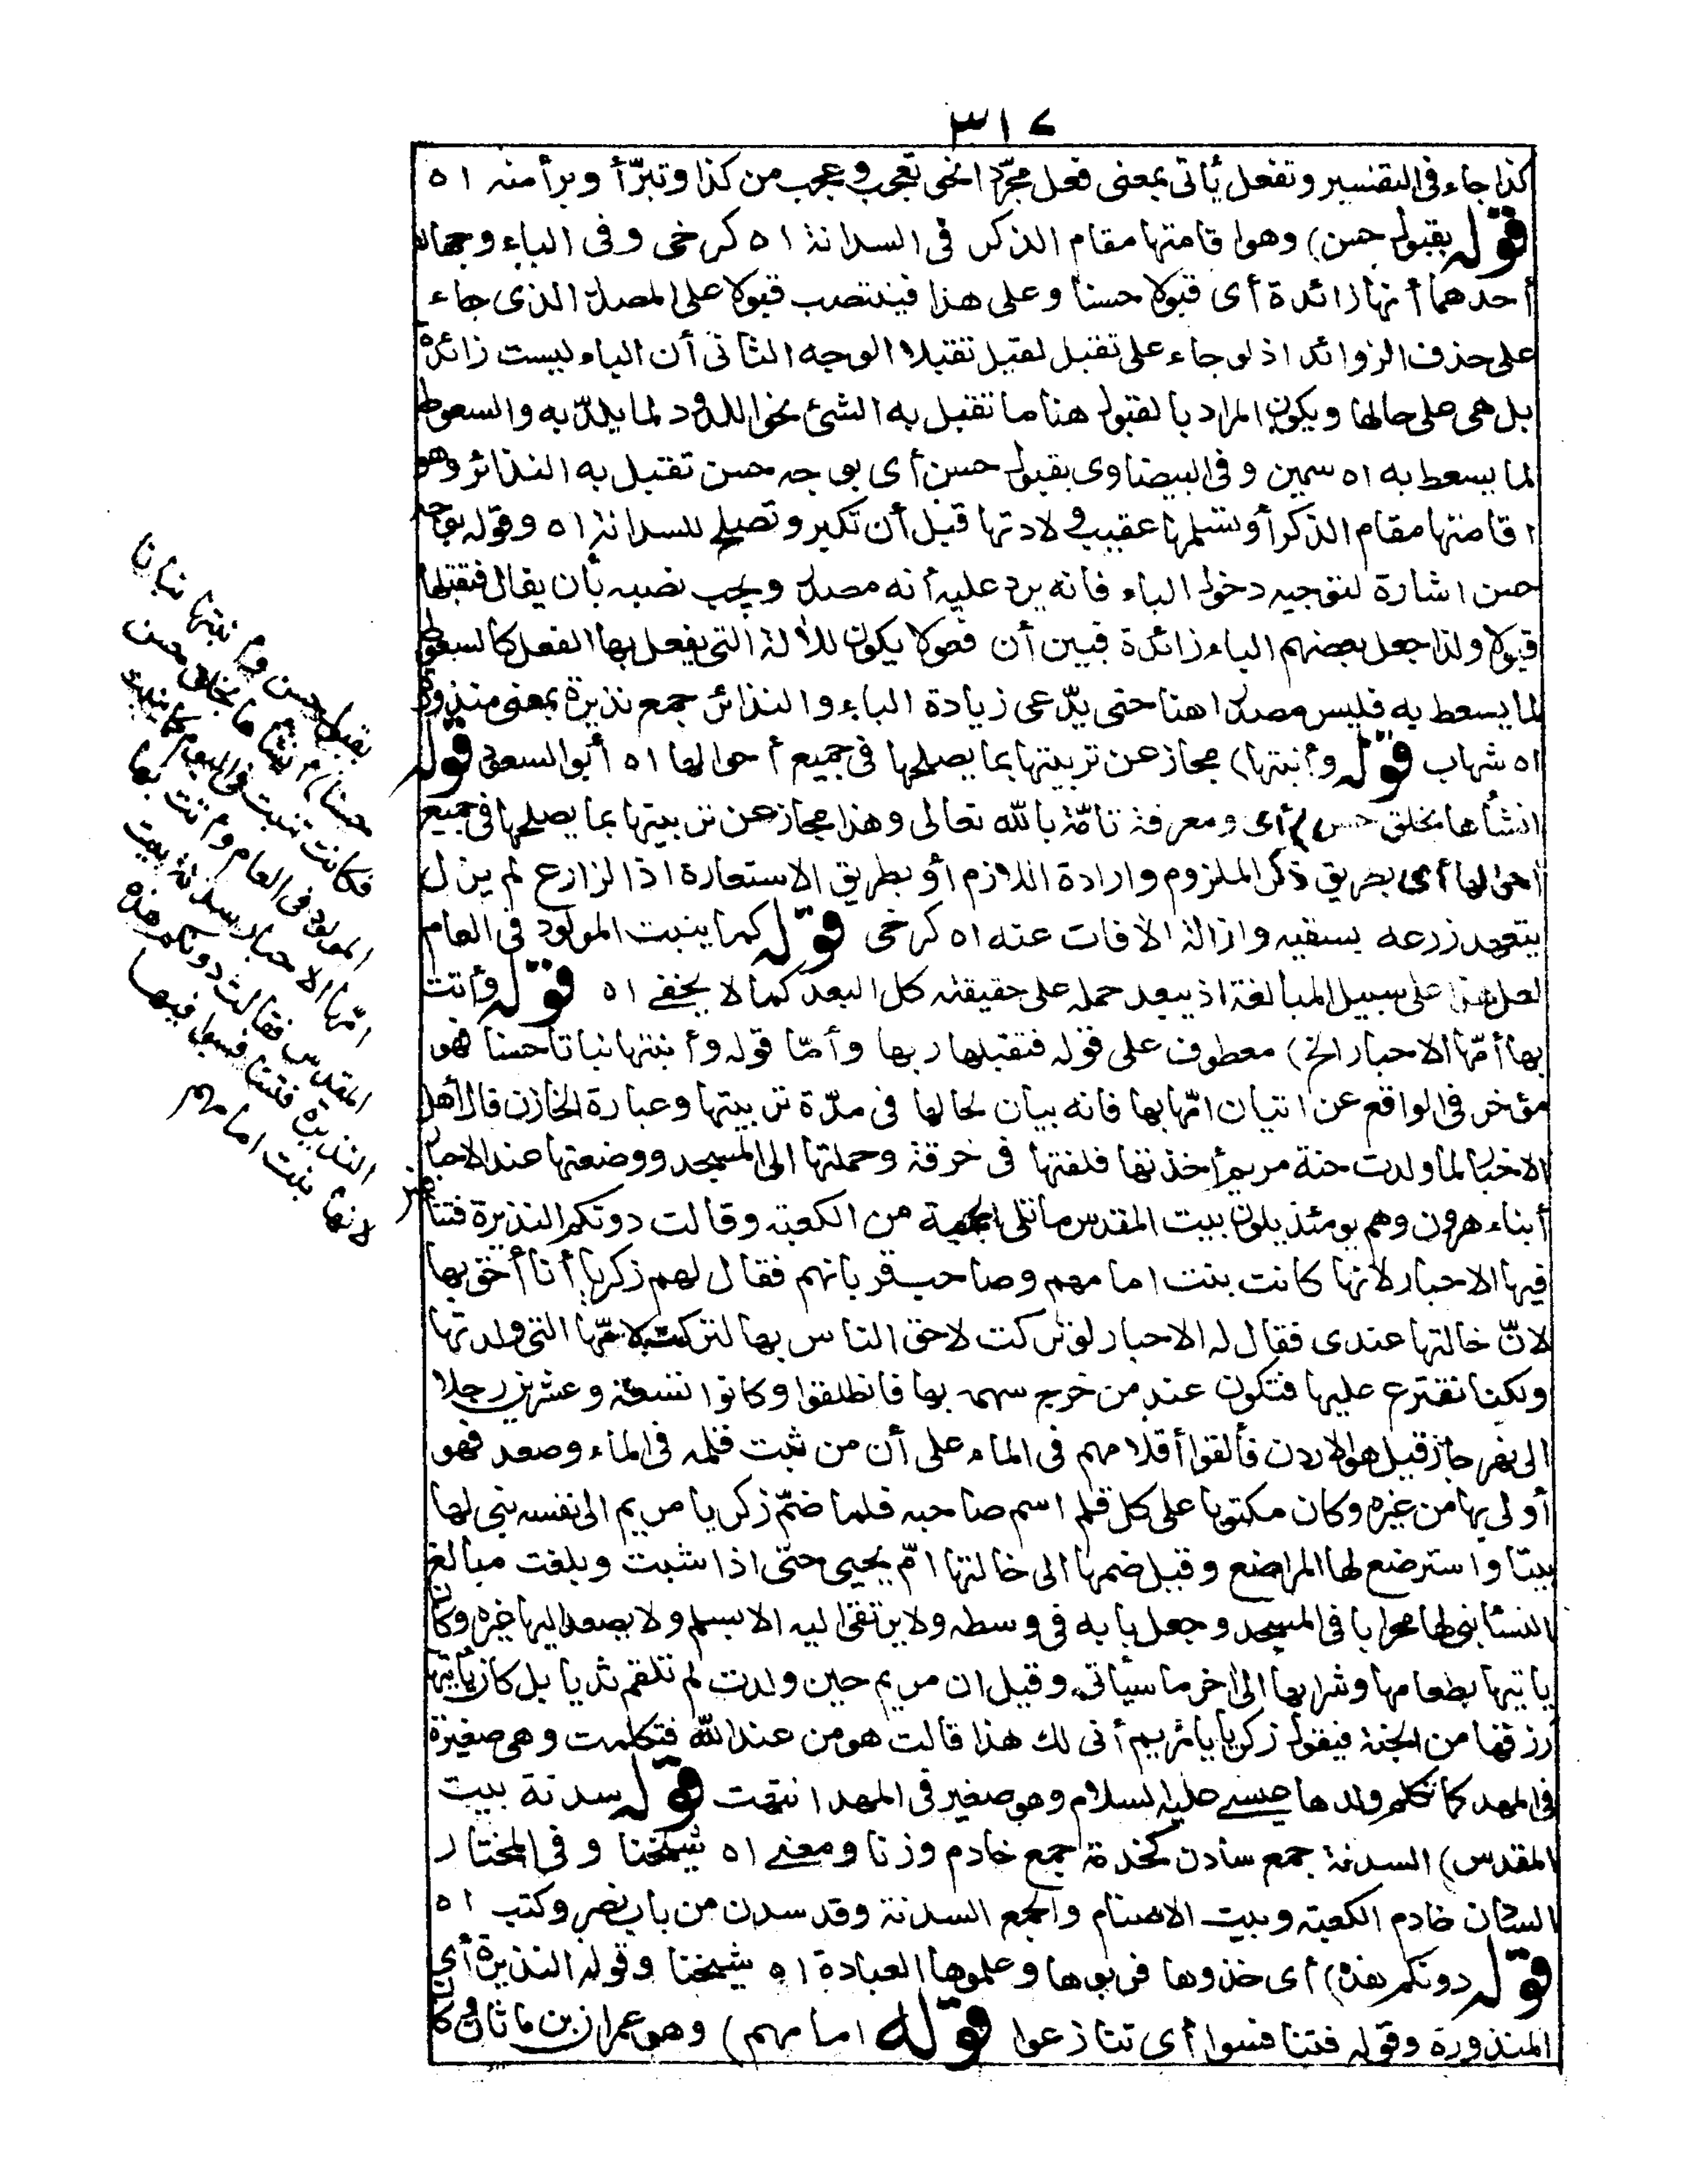 ٣١٧
كذا جاء فى التفسير وتفعل يأتى بمعنى فعل مجرّدا نحو تعجب وعجب من كذا وتبرّأ وبرأ منه اه
قوله بقبول حسن) وهو اقامتها مقام الذكر فى السدانة اه كرخى وفى الباء وجهان
أحدهما أنها زائدة أى قبولا حسنا وعلى هذا فينتصب قبولا على المصدر الذى جاء
على حذف الزوائد اذ لو جاء على تقبل لقيل تقبلا الوجه الثانى أن الباء ليست زائدة
بل هى على حالها ويكون المراد بالقبول هنا ما تقبل به الشئ نحو اللدود لما يلدّ به والسعوط
لما يسعط به اه سمين وفى البيضاوى بقبول حسن أى بوجه حسن تقبل به النذائر وهو
اقامتها مقام الذكر أو تسلمها عقيب ولادتها قبل أن تكبر وتصلح للسدانة اه وقوله بوجه
حسن اشارة لتوجيه دخول الباء فانه يرد عليه أنه مصدر ويجب نصبه بأن يقال فتقبلها
قبولا ولذا جعل بعضهم الباء زائدة فبين أن فعولا يكون للآلة التى يفعل بها الفعل كالسعوط
لما يسعط به فليس مصدرا هنا حتى يدّعى زيادة الباء والنذائر جمع نذيرة بمعنى منذورة
اه شهاب قوله وأنبتها) مجاز عن تربيتها بما يصلحها فى جميع أحوالها اه أبو السعود قوله
انشأها بخلق حسن) أى ومعرفة تامّة بالله تعالى وهذا مجاز عن تربيتها بما يصلحها فى جميع
أحوالها أى بطريق ذكر الملزوم وارادة اللازم أو بطريق الاستعارة اذ الزارع لم يزل
يتعهد زرعه بسقيه وازالة الآفات عنه اه كرخى قوله كما ينبت المولود فى العام
لعل هذا على سبيل المبالغة اذ يبعد حمله على حقيقته كل البعد كما لا يخفى اه قوله وأتت
بها أمّها الاحبار الخ) معطوف على قوله فتقبلها ربها وأمّا قوله وأنبتها نباتا حسنا فهو
مؤخر فى الواقع عن اتيان امّها بها فانه بيان لحالها فى مدّة تربيتها وعبارة الخازن قال أهل
الاخبار لما ولدت حنة مريم أخذتها فلفتها فى خرقة وحملتها الى المسجد ووضعتها عند الاحبار
أبناء هرون وهم يومئذ يلون بيت المقدس ما تلى الحجبة من الكعبة وقالت دونكم النذيرة فتنافس
فيها الاحبار لانها كانت بنت امامهم وصاحب قربانهم فقال لهم زكريا أنا أحق بها
لانّ خالتها عندى فقال له الاحبار لو تركت لاحق الناس بها لتركت لامّها التى ولدتها
ولكنا نقترع عليها فتكون عند من خرج سهمه بها فانطلقوا وكانوا تسعة وعشرين رجلا
الى نهر جاز قيل هو الاردن فألقوا أقلامهم فى الماء على أن من ثبت قلمه فى الماء وصعد فهو
أولى بها من غيره وكان مكتوبا على كل قلم اسم صاحبه فلما ضمّ زكريا مريم الى نفسه بنى لها
بيتا واسترضع لها المراضع وقيل ضمها الى خالتها امّ يحيى حتى اذا شبت وبلغت مبالغ
النسا بنى لها محرابا فى المسجد وجعل بابه فى وسطه ولا يرتقى اليه الا بسلم ولا يصعد اليها غيره وكان
يأتيها بطعامها وشرابها الى آخر ما سيأتى وقيل ان مريم حين ولدت لم تلقم ثديا بل كان يأتيها
رزقها من الجنة فيقول زكريا يا مريم أنى لك هذا قالت هو من عند الله فتكلمت وهى صغيرة
فى المهد كما تكلم ولدها عيسى عليه السلام وهو صغير فى المهد انتهت قوله سدنة بيت
المقدس) السدنة جمع سادن كخدمة جمع خادم وزنا ومعنى اه شيخنا وفى المختار
السادن خادم الكعبة وبيت الاصنام والجمع السدنة وقد سدن من باب نصر وكتب اه
قوله دونكم هذه) أى خذوها فربوها وعلموها العبادة اه شيخنا وقوله النذيرة أى
المنذورة وقوله فتنافسوا أى تنازعوا قوله امامهم) وهو عمران بن ماثان وكان
بقبول حسن وأنبتها نباتا
حسنا) أنشأها بخلق حسن
فكانت تنبت فى اليوم كما ينبت
المولود فى العام وأتت بها
امّها الاحبار سدنة بيت
المقدس فقالت دونكم هذه
النذيرة فتنافسوا فيها
لانها بنت امامهم